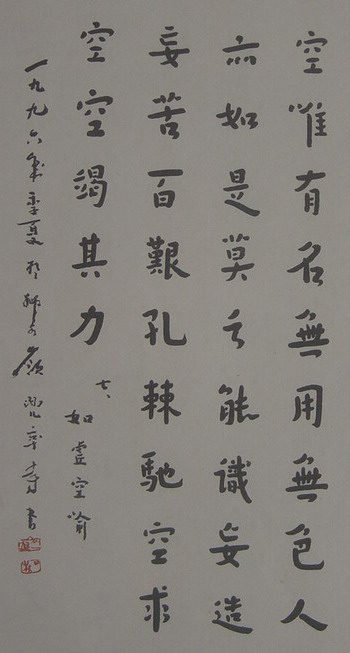 空唯有名無用無色人
亦如是莫之能識妄造
妄苦百艱孔棘馳空求
空空竭其力
如虛空喻
一九九六歲季夏於獅子嶺兜率寺書